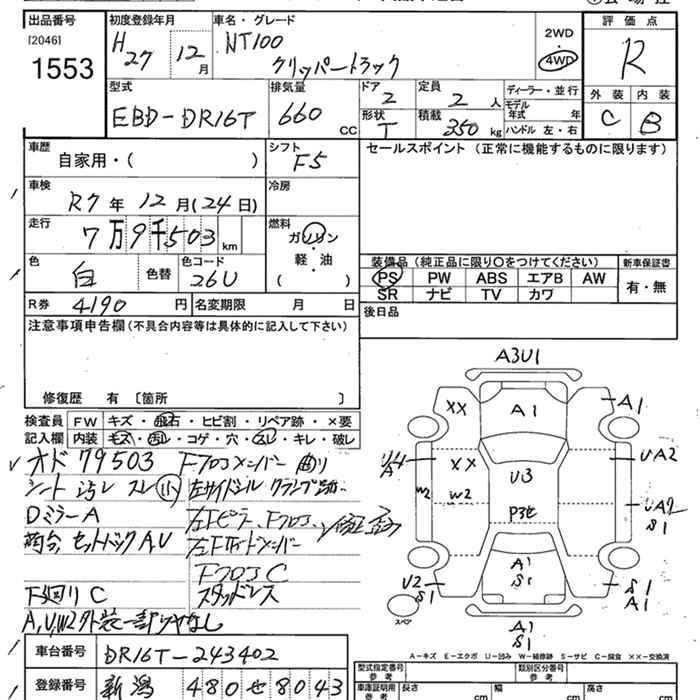 出品番号
[2046]
1553
初度登録年月
H27 12月
車名・グレード
NT100
クリッパートラック
2WD
4WD
評価点
R
外装 内装
C B
型式
EBD-DR16T
排気量
660 CC
ドア
2
形状
T
定員
2 人
積載
350 kg
ディーラー・並行
モデル年式 年
ハンドル 左・右
車歴
自家用・( )
シフト
F5
セールスポイント (正常に機能するものに限ります)
車検
R7年 12月(24日)
冷房
走行
7万9千503km
燃料
ガソリン
・
軽・油
( )
色
白
色替
色コード
26U
装備品 (純正品に限り○をつけてください)
PS PW ABS エアB AW
SR ナビ TV カワ
新車保証書
有・無
R券 4190円
名変期限 月 日
後日品
注意事項申告欄(不具合内容等は具体的に記入して下さい)
修復歴 有 〔箇所 〕
検査員記入欄
FW キズ・飛石・ヒビ割・リペア跡・×要
内装 モス・汚レ・コゲ・穴・スレ・キレ・破レ
オド 79503
シート 汚レ スレ(小)
DミラーA
荷台 セットバック A,U
下廻り C
A,U,W2外装一部リヤなし
Fフロアメンバー 曲り
左サイドシル クランプ跡
左Fピラー、Fフロア、修正歪み
左Fインナーメンバー
FフロアC
スタッドレス
A3U1
XX
A1
A1
U4
A
XX
W2
W2
U3
UA2
P3せ
UA2
S1
A1
S1
U2
S1
S1
A1
スペア
A1
S1
A-キズ E-エクボ U-凹み W-補修跡 S-サビ C-腐食 XX-交換済
車台番号
DR16T-243402
登録番号
新潟 480せ8043
型式指定番号
参考
類別区分番号
参考
車庫証明用
参考
長さ cm
幅 cm
高さ cm